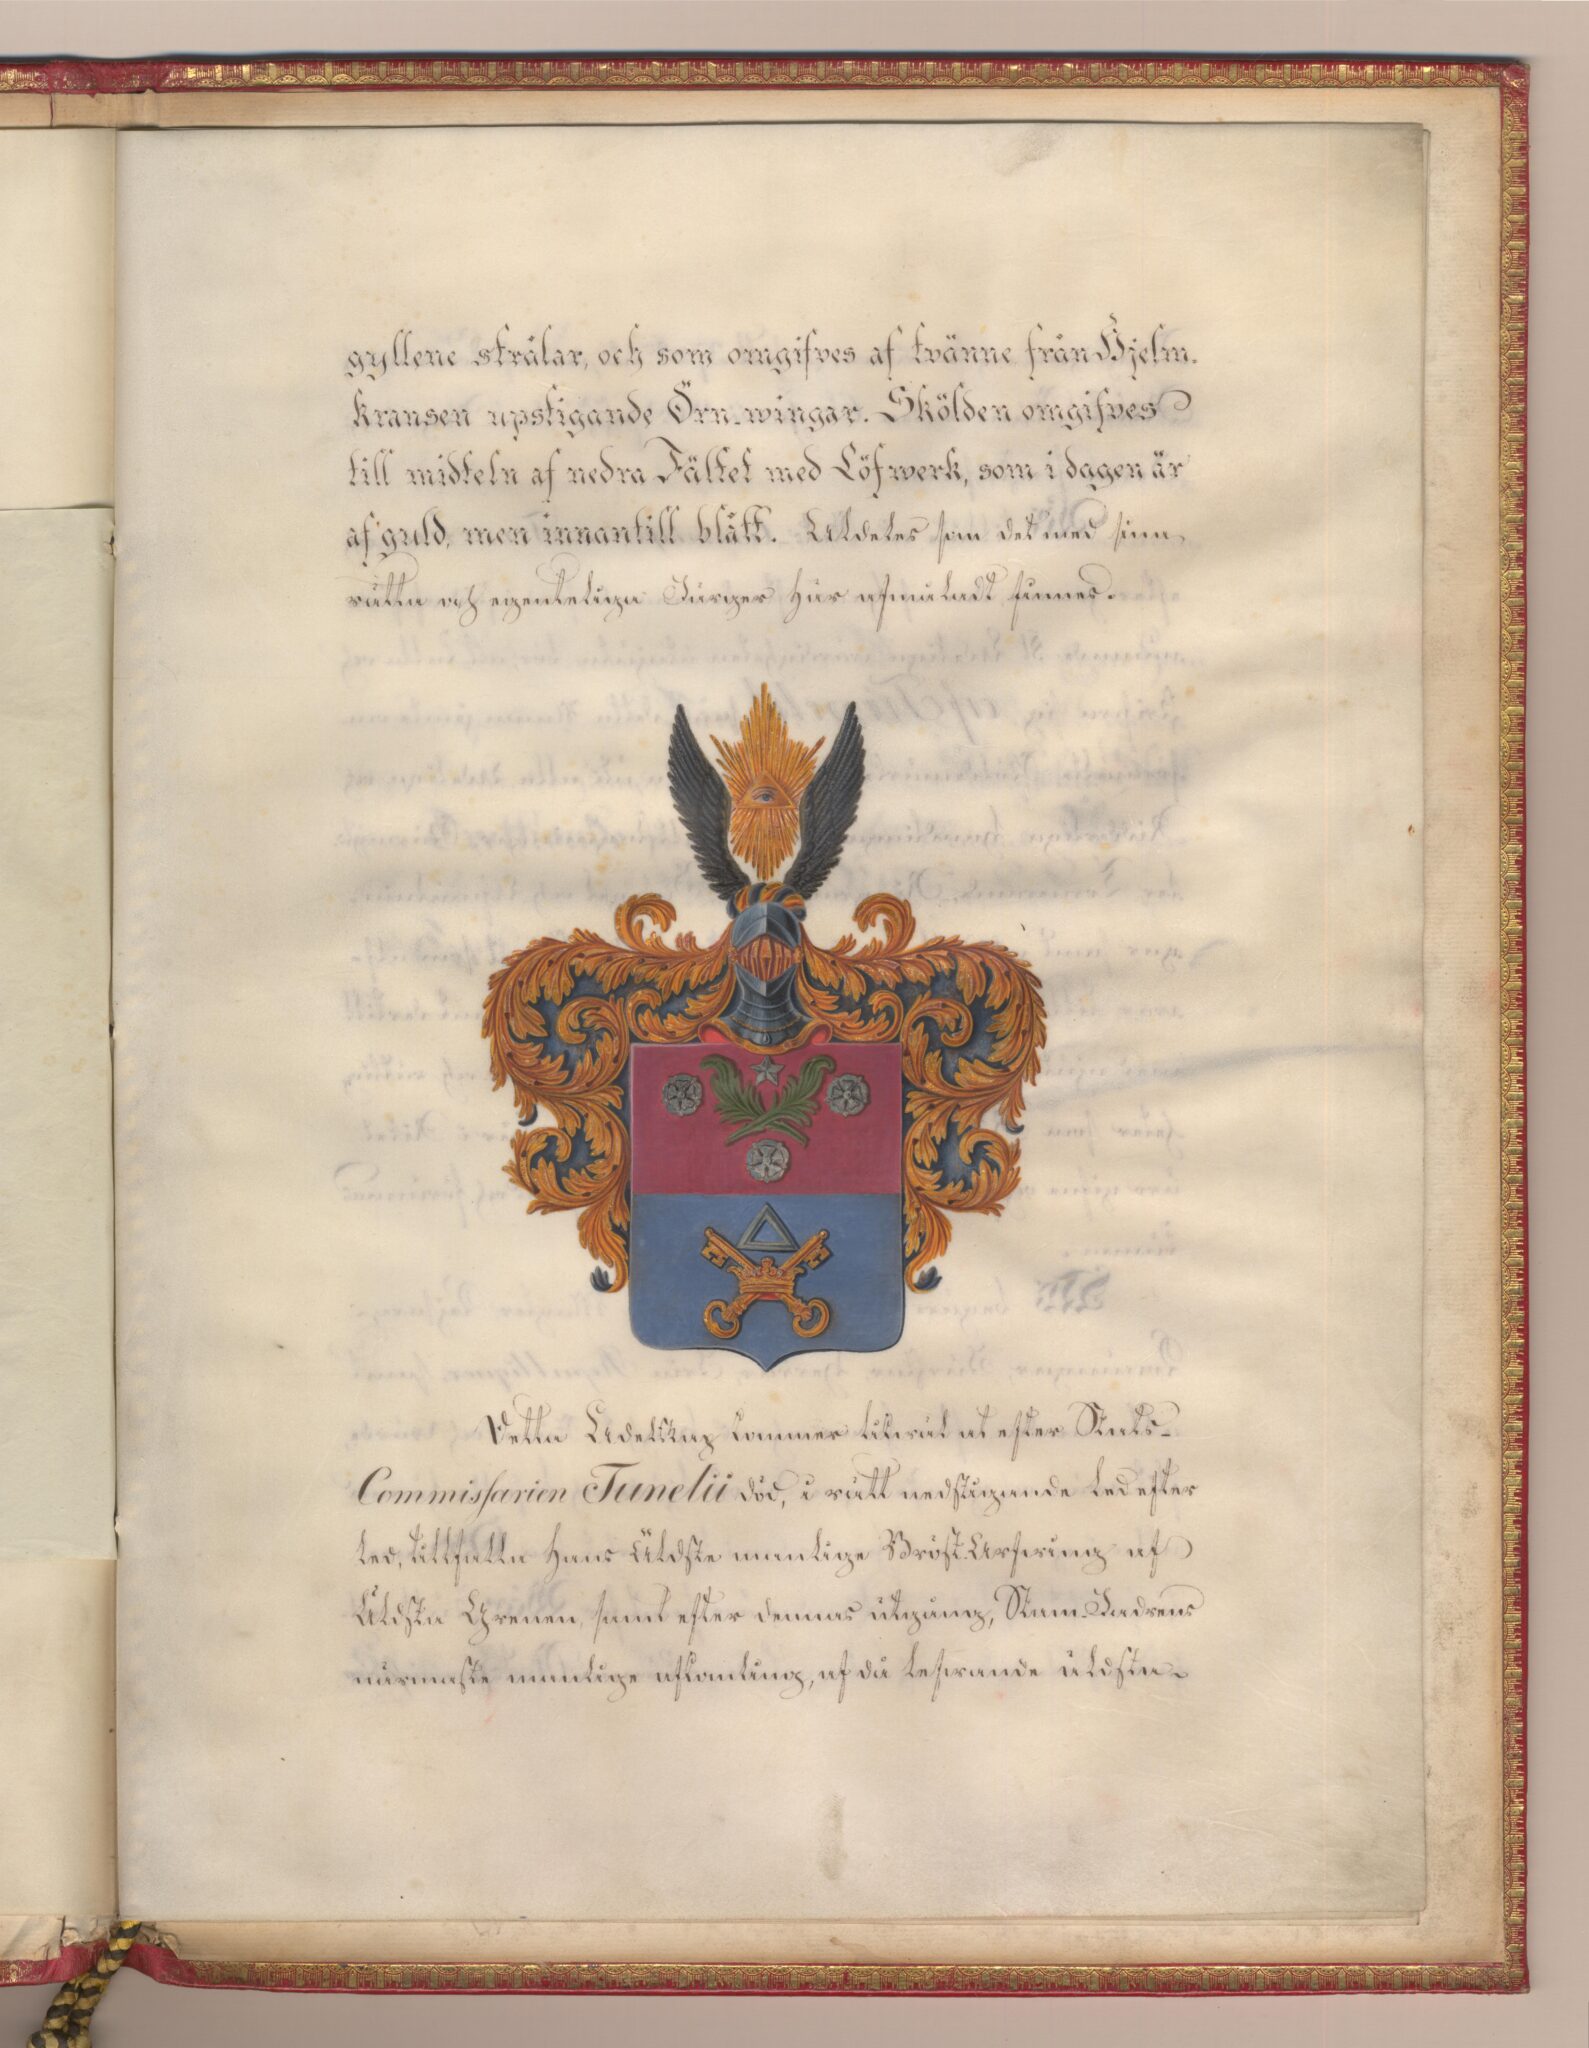 gyllene strålar, och som omgifves af tvänne från Hjelm-
kransen upstigande Örn-wingar. Skölden omgifves
till midteln af nedra Fältet med Löfwerk, som i dagen är
af guld, men innantill blått. Aldeles som det med sina
rätta och egenteliga Färger här afmåladt finnes.
Detta Adelskap kommer likwäl at efter Stats-
Commissarien Tunelii död, i rätt nedstigande led efter
led, tillfalla Hans Äldste manlige Bröst-Arfwing af
Äldsta Grenen, samt efter dennas utgång, Stam-Fadrens
närmaste manlige afkomling, af då lefwande äldsta